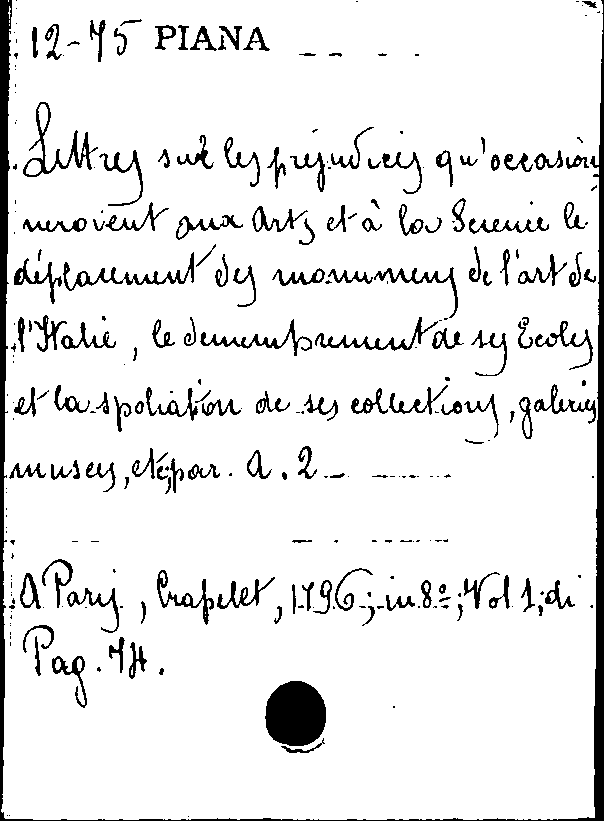 12-75 PIANA
Lettres sur les préjudices qu'occasion
neroient aux Arts et à la Science le
déplacement des monumens de l'art de
l'Italie, le demembrement de ses Ecoles
et la spoliation de ses collections, galeries
musées, etc; par. A. 2
A Paris, Crapelet, 1796; in 8º; Vol 1; di
Pag. 74.